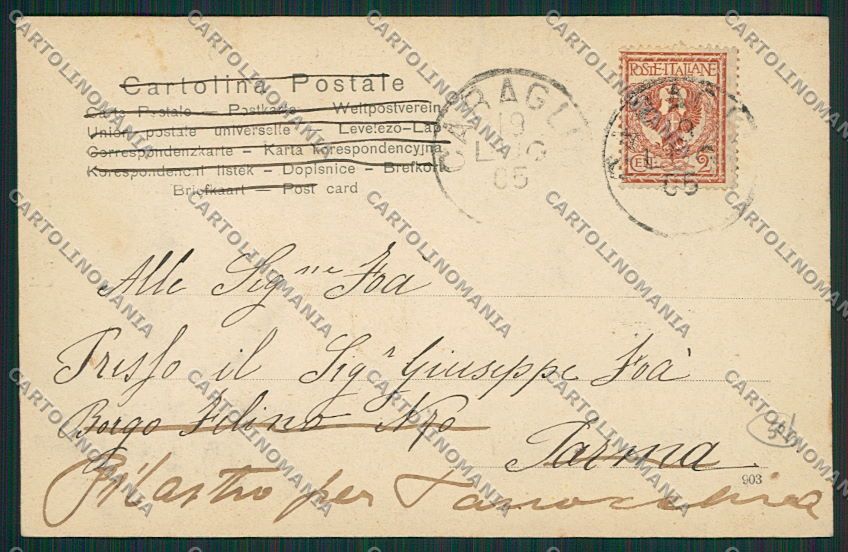 Cartolina Postale
Carte Postale — Postkarte — Weltpostverein
Union postale universelle — Levelezo-Lap
Correspondenzkarte — Karta korespondencyjna
Korespondenčni listek — Dopisnice — Brefkort
Briefkaart — Post card
CARAGLI
19
LUG
05
POSTE·ITALIANE
2
05
Alle Signe Foà
Presso il Sigr Giuseppe Foà
Borgo Felino
Parma
Pilastro per Pannocchia
903
CARTOLINOMANIA